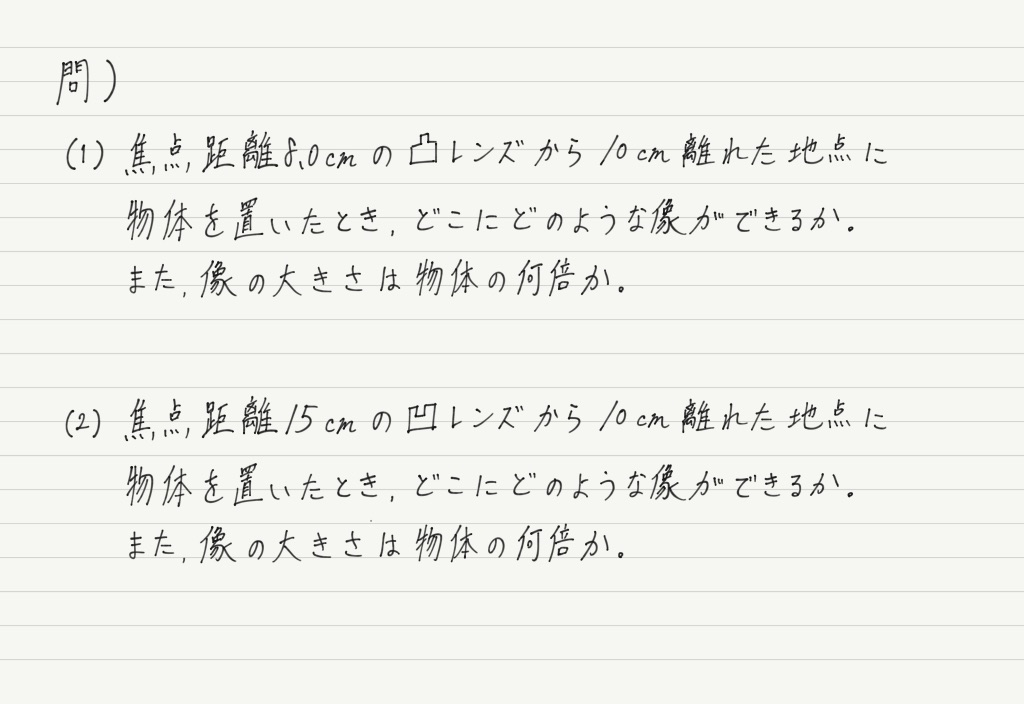 問)
(1) 焦点距離8.0cmの凸レンズから10cm離れた地点に
物体を置いたとき, どこにどのような像ができるか。
また, 像の大きさは物体の何倍か。
(2) 焦点距離15cmの凹レンズから10cm離れた地点に
物体を置いたとき, どこにどのような像ができるか。
また, 像の大きさは物体の何倍か。